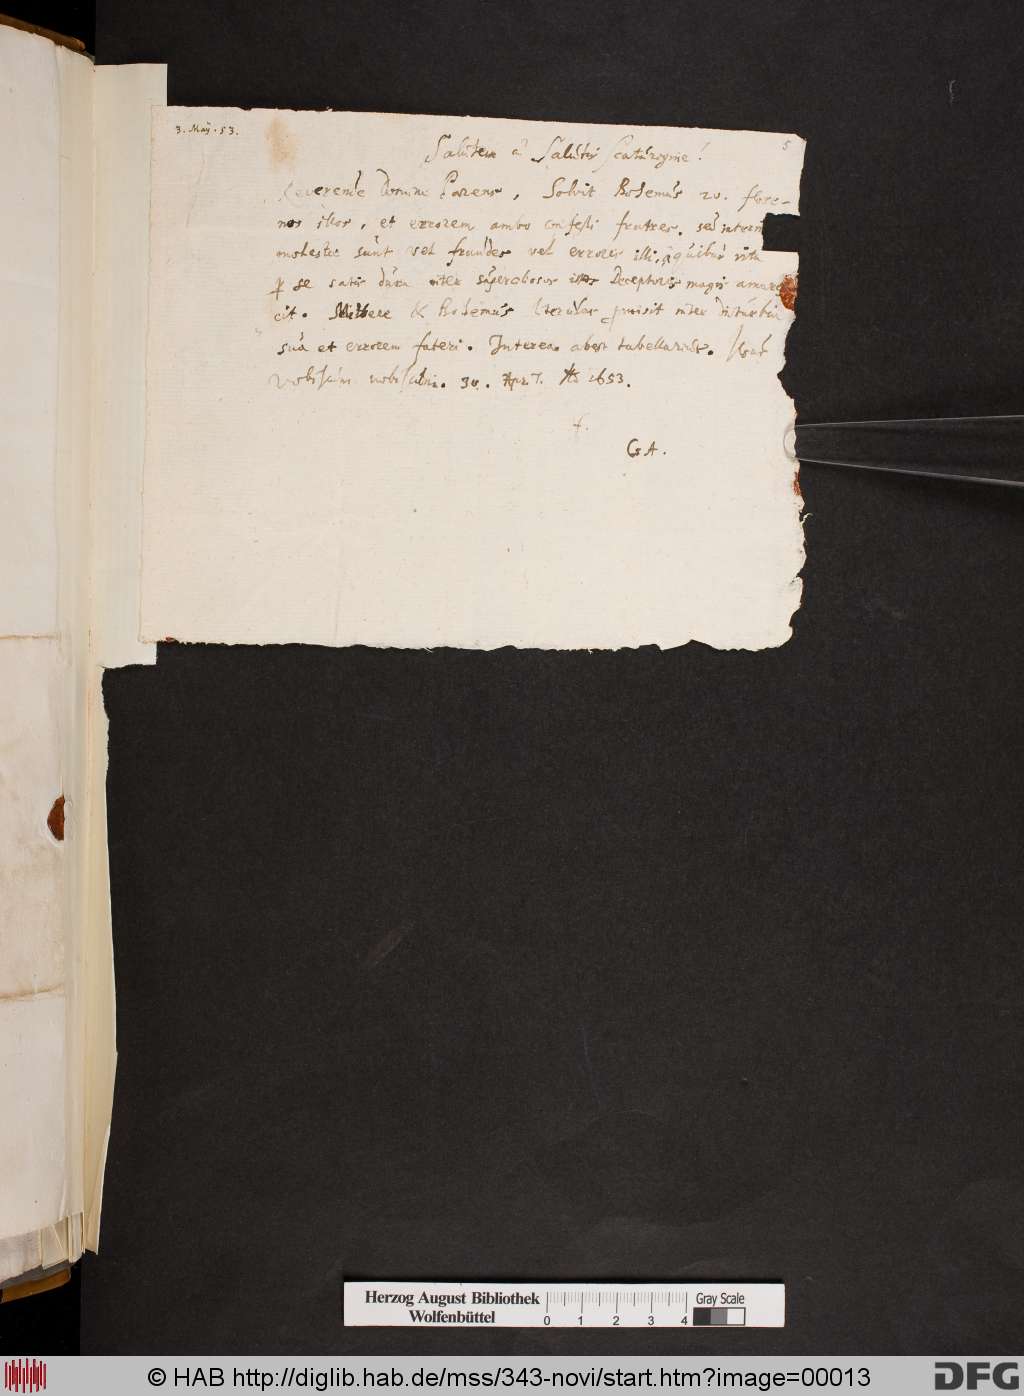 3. Maÿ. 53.
5
Salutem a Salutis scaturigine!
Reverende Domine Parens, Solvit Bohemus 20. flore-
nos illos, et errorem ambo confessi fratres. sed interim
molestae sunt vel fraudes vel errores illi, quibus vita
per se satis dura inter Deceptores magis amare
cit. Mittere & Bohemus literulas inter
sua et errorem fateri. Interea abest tabellarius.
Vobiscum nobiscum. 30. Apr. Ao 1653.
GA.
Herzog August Bibliothek
Wolfenbüttel
0 1 2 3 4
Gray Scale
© HAB http://diglib.hab.de/mss/343-novi/start.htm?image=00013
DFG